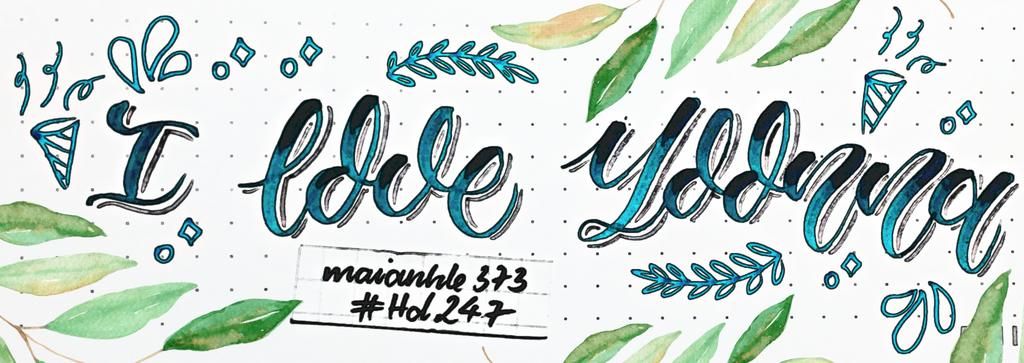 I love Yoonna
maianhle 373
#Hol247